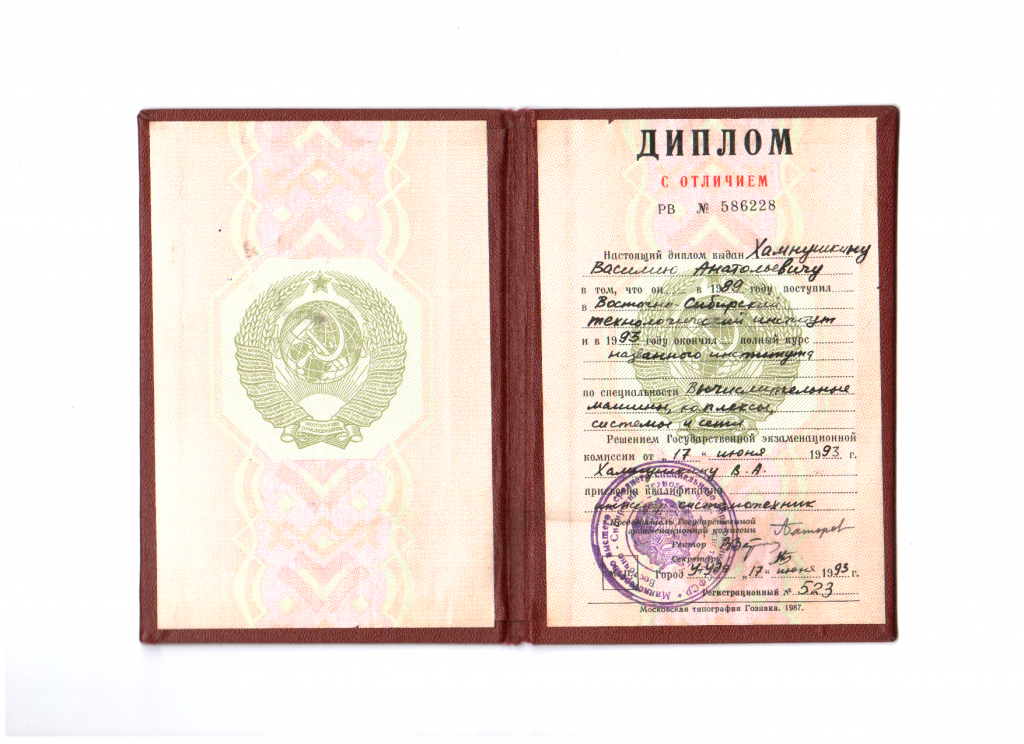 ДИПЛОМ
С ОТЛИЧИЕМ
РВ № 586228
Настоящий диплом выдан Хамнушкину
Василию Анатольевичу
в том, что он в 1989 году поступил
в Восточно-Сибирский
технологический институт
и в 1993 году окончил полный курс
названного института
по специальности Вычислительные
машины, комплексы,
системы и сети
Решением Государственной экзаменационной
комиссии от „17" июня 1993 г.
Хамнушкину В.А.
присвоена квалификация
инженер-системотехник
Председатель Государственной
экзаменационной комиссии
Ректор
Секретарь
Город У-Удэ „17" июня 1993 г.
Регистрационный № 523
Московская типография Гознака. 1987.